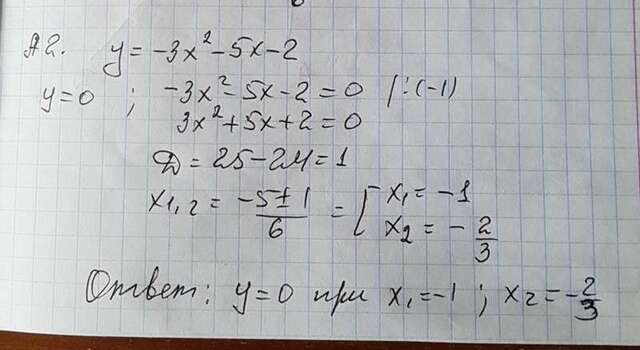 А2. y = -3x² - 5x - 2
y = 0 ; -3x² - 5x - 2 = 0 | : (-1)
3x² + 5x + 2 = 0
D = 25 - 24 = 1
x1,2 = (-5 ± 1)/6 = [ x1 = -1
x2 = - 2/3
Ответ: y = 0 при x1 = -1 ; x2 = - 2/3